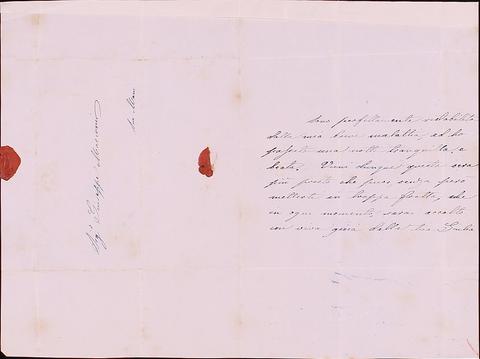 Sig.r Giuseppe
S. M.
Sono perfettamente ristabilita
della mia breve malattia, ed ho
passato una notte tranquilla, e
beata. Vieni dunque questa sera
più presto che puoi senza però
metterti in troppa fretta, che
in ogni momento sarai accolto
con viva gioia dalla tua Giulia